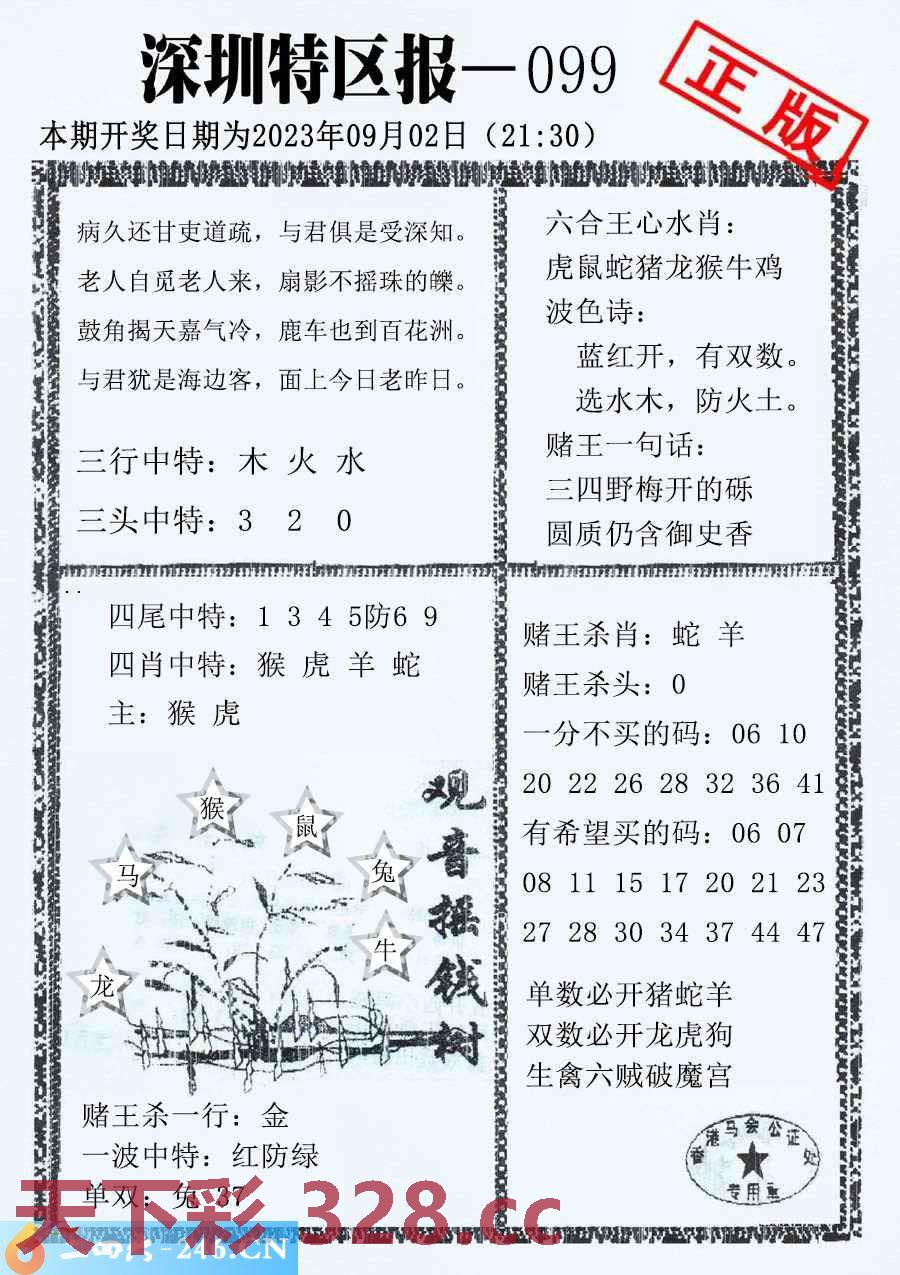 深圳特区报—099
正版
本期开奖日期为2023年09月02日（21:30）
病久还甘吏道疏，与君俱是受深知。
老人自觅老人来，扇影不摇珠的皪。
鼓角揭天嘉气冷，鹿车也到百花洲。
与君犹是海边客，面上今日老昨日。
三行中特：木 火 水
三头中特：3 2 0
六合王心水肖：
虎鼠蛇猪龙猴牛鸡
波色诗：
蓝红开，有双数。
选水木，防火土。
赌王一句话：
三四野梅开的砾
圆质仍含御史香
四尾中特：1 3 4 5防6 9
四肖中特：猴 虎 羊 蛇
主：猴 虎
观音摇钱树
猴
鼠
马
兔
牛
龙
赌王杀一行：金
一波中特：红防绿
单双：兔 37
赌王杀肖：蛇 羊
赌王杀头：0
一分不买的码：06 10
20 22 26 28 32 36 41
有希望买的码：06 07
08 11 15 17 20 21 23
27 28 30 34 37 44 47
单数必开猪蛇羊
双数必开龙虎狗
生禽六贼破魔宫
香港马会公证处
专用章
天下彩 328.cc
-246.CN